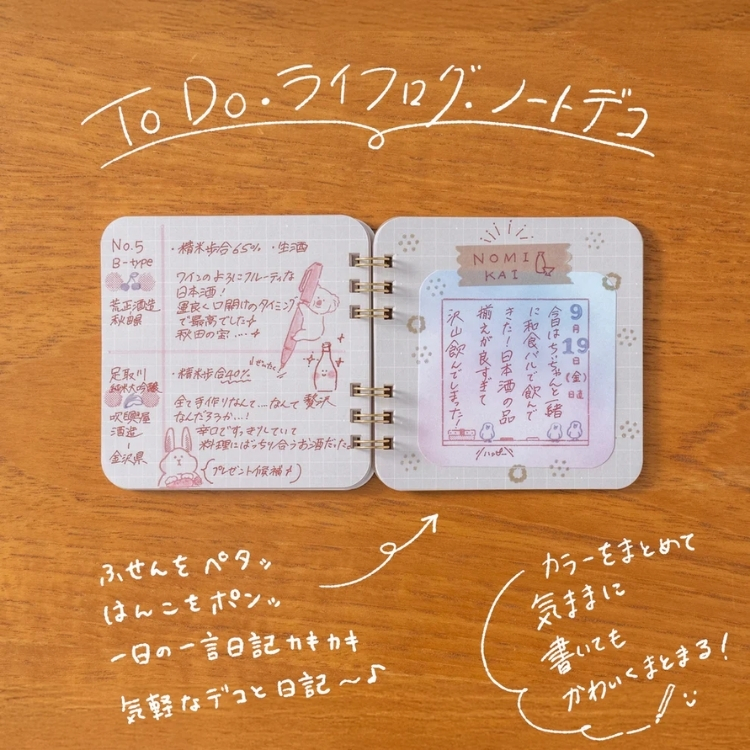 To Do・ライフログ・ノートデコ
No.5
B-type
荒正酒造
秋田県
・精米歩合65%・生酒
ワインのようにフルーティな
日本酒!
運良く口開けのタイミング
で最高でした
秋田の宝....
足取川
純米大吟醸
吹興屋
酒造
金沢県
・精米歩合40%
ぜいたく
全て手作りなんて...なんて贅沢
なんだろうか…!
辛口ですっきりしていて
料理にばっちり合うお酒だったよ
プレゼント候補
NOMI
KAI
9月19日(金)
今日はちぃちゃんと一緒
に和食バルで飲んで
きた!日本酒の品
揃えが良すぎて
沢山飲んでしまった!
ふせんをペタッ
はんこをポンッ
一日の一言日記カキカキ
気軽なデコと日記〜♪
カラーをまとめて
気ままに
書いても
かわいくまとまる!